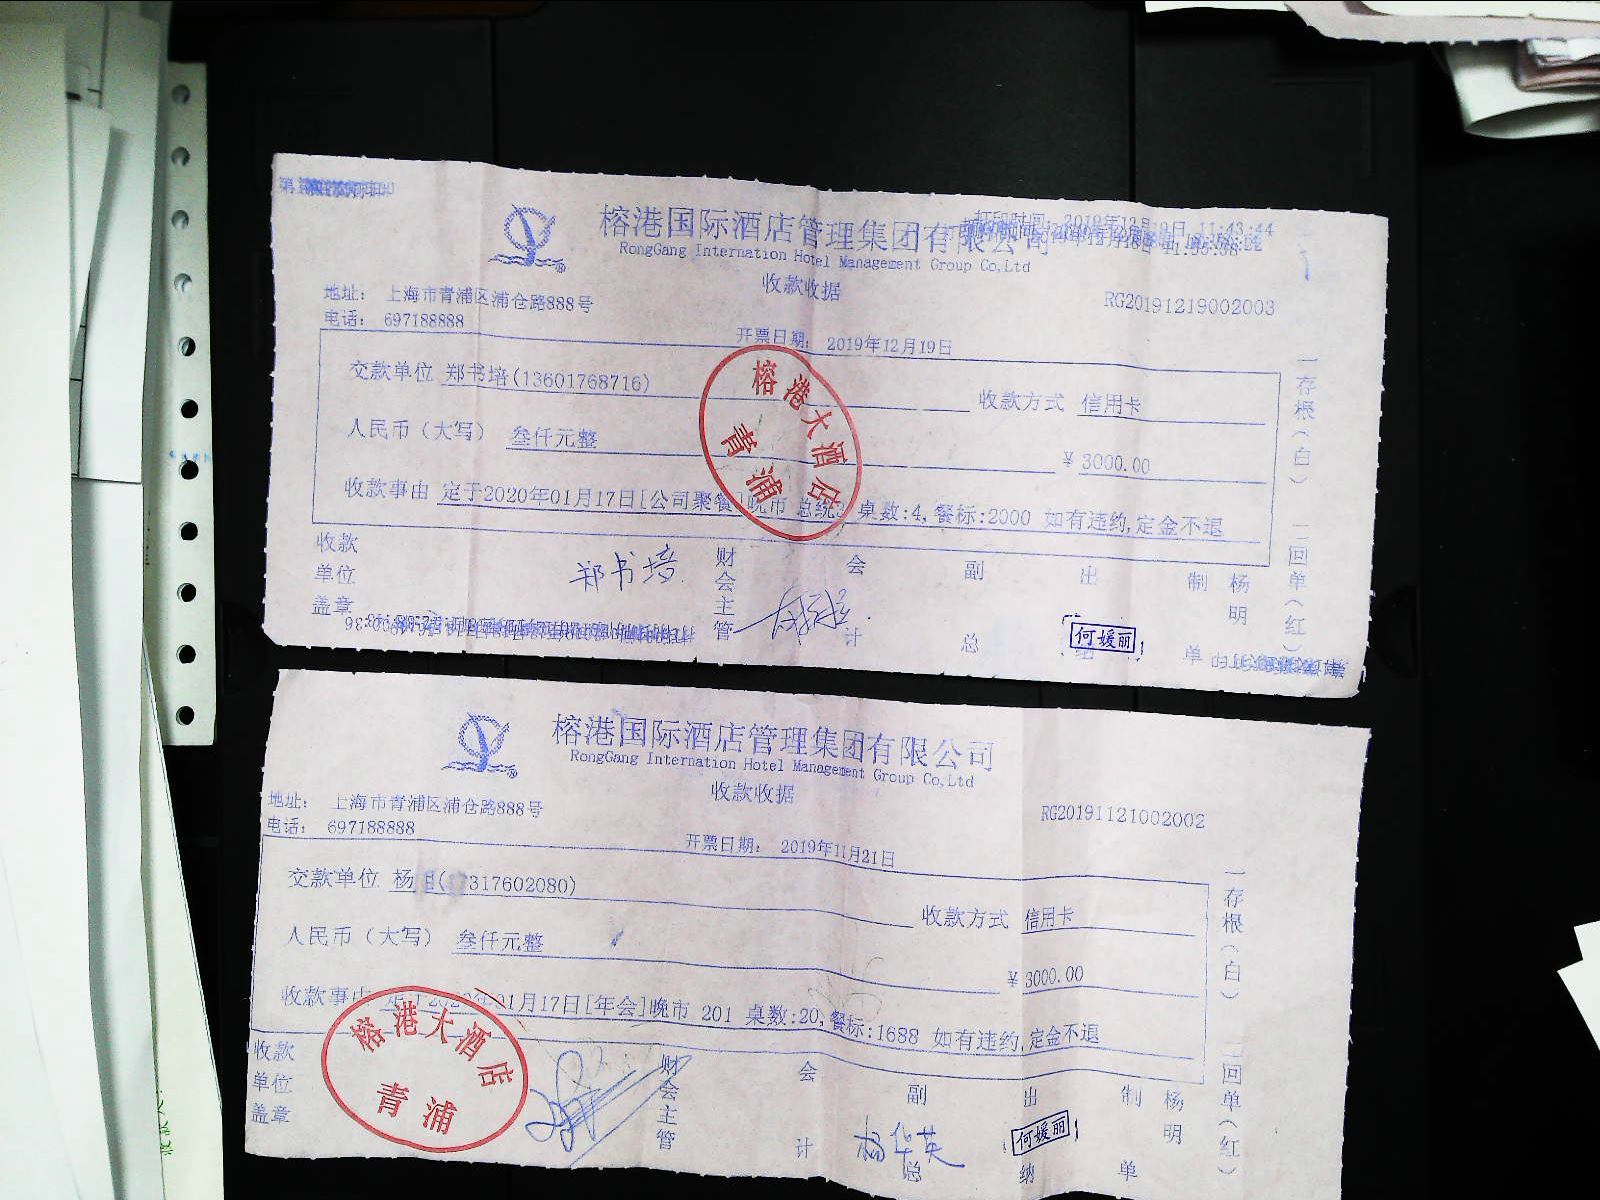 榕港国际酒店管理集团有限公司
打印时间：2019年12月19日 11:43:44
RongGang Internation Hotel Management Group Co,Ltd
收款收据
地址： 上海市青浦区浦仓路888号
RG20191219002003
电话： 697188888
开票日期： 2019年12月19日
交款单位 郑书培(13601768716)
收款方式 信用卡
人民币（大写） 叁仟元整
￥3000.00
收款事由 定于2020年01月17日[公司聚餐]晚市 总统 桌数:4,餐标:2000 如有违约,定金不退
榕港大酒店
青浦
一存根（白） 二回单（红）
收款单位盖章
郑书培
财会主管
会计
副总
出纳
何媛丽
制单
杨明
榕港国际酒店管理集团有限公司
RongGang Internation Hotel Management Group Co,Ltd
收款收据
地址： 上海市青浦区浦仓路888号
RG20191121002002
电话： 697188888
开票日期： 2019年11月21日
交款单位 杨 317602080)
收款方式 信用卡
人民币（大写） 叁仟元整
￥3000.00
收款事由 定于2020年01月17日[年会]晚市 201 桌数:20,餐标:1688 如有违约,定金不退
榕港大酒店
青浦
一存根（白） 二回单（红）
收款单位盖章
财会主管
会计
杨华英
副总
出纳
何媛丽
制单
杨明